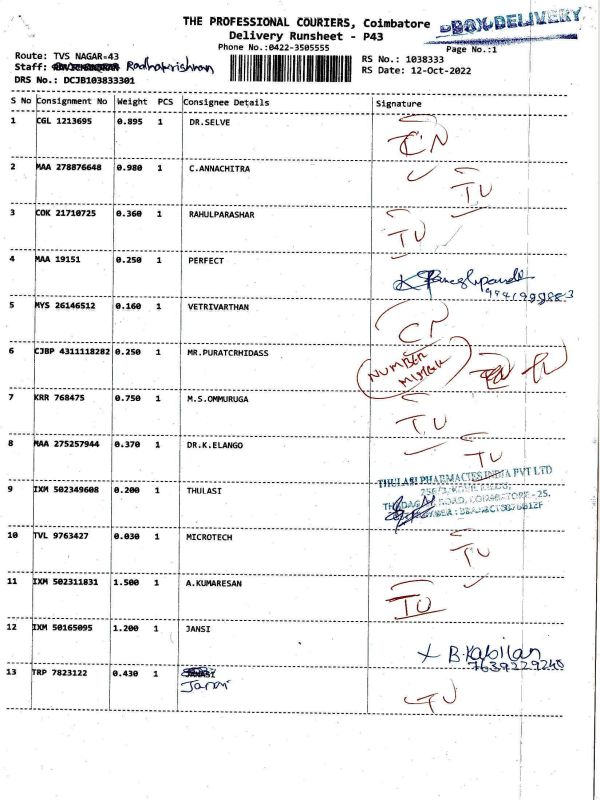 THE PROFESSIONAL COURIERS, Coimbatore
BOX DELIVERY
Delivery Runsheet - P43
Phone No.:0422-3505555
Page No.:1
Route: TVS NAGAR-43
RS No.: 1038333
Staff: Radhakrishnan
RS Date: 12-Oct-2022
DRS No.: DCJB103833301
S No Consignment No Weight PCS Consignee Details Signature
1 CGL 1213695 0.895 1 DR.SELVE
2 MAA 278876648 0.980 1 C.ANNACHITRA TU
3 COK 21710725 0.360 1 RAHULPARASHAR TU
4 MAA 19151 0.250 1 PERFECT
5 MYS 26146512 0.160 1 VETRIVARTHAN
6 CJBP 4311118282 0.250 1 MR.PURATCRHIDASS NUMBER
7 KRR 768475 0.750 1 M.S.OMMURUGA TU
8 MAA 275257944 0.370 1 DR.K.ELANGO TU
THULASI PHARMACIES INDIA PVT LTD
9 IXM 502349608 0.200 1 THULASI
ROAD, COIMBATORE - 25.
10 TVL 9763427 0.030 1 MICROTECH TU
11 IXM 502311831 1.500 1 A.KUMARESAN TU
12 IXM 50165095 1.200 1 JANSI B.Kabilan
7639229240
13 TRP 7823122 0.430 1 TU
Jansi